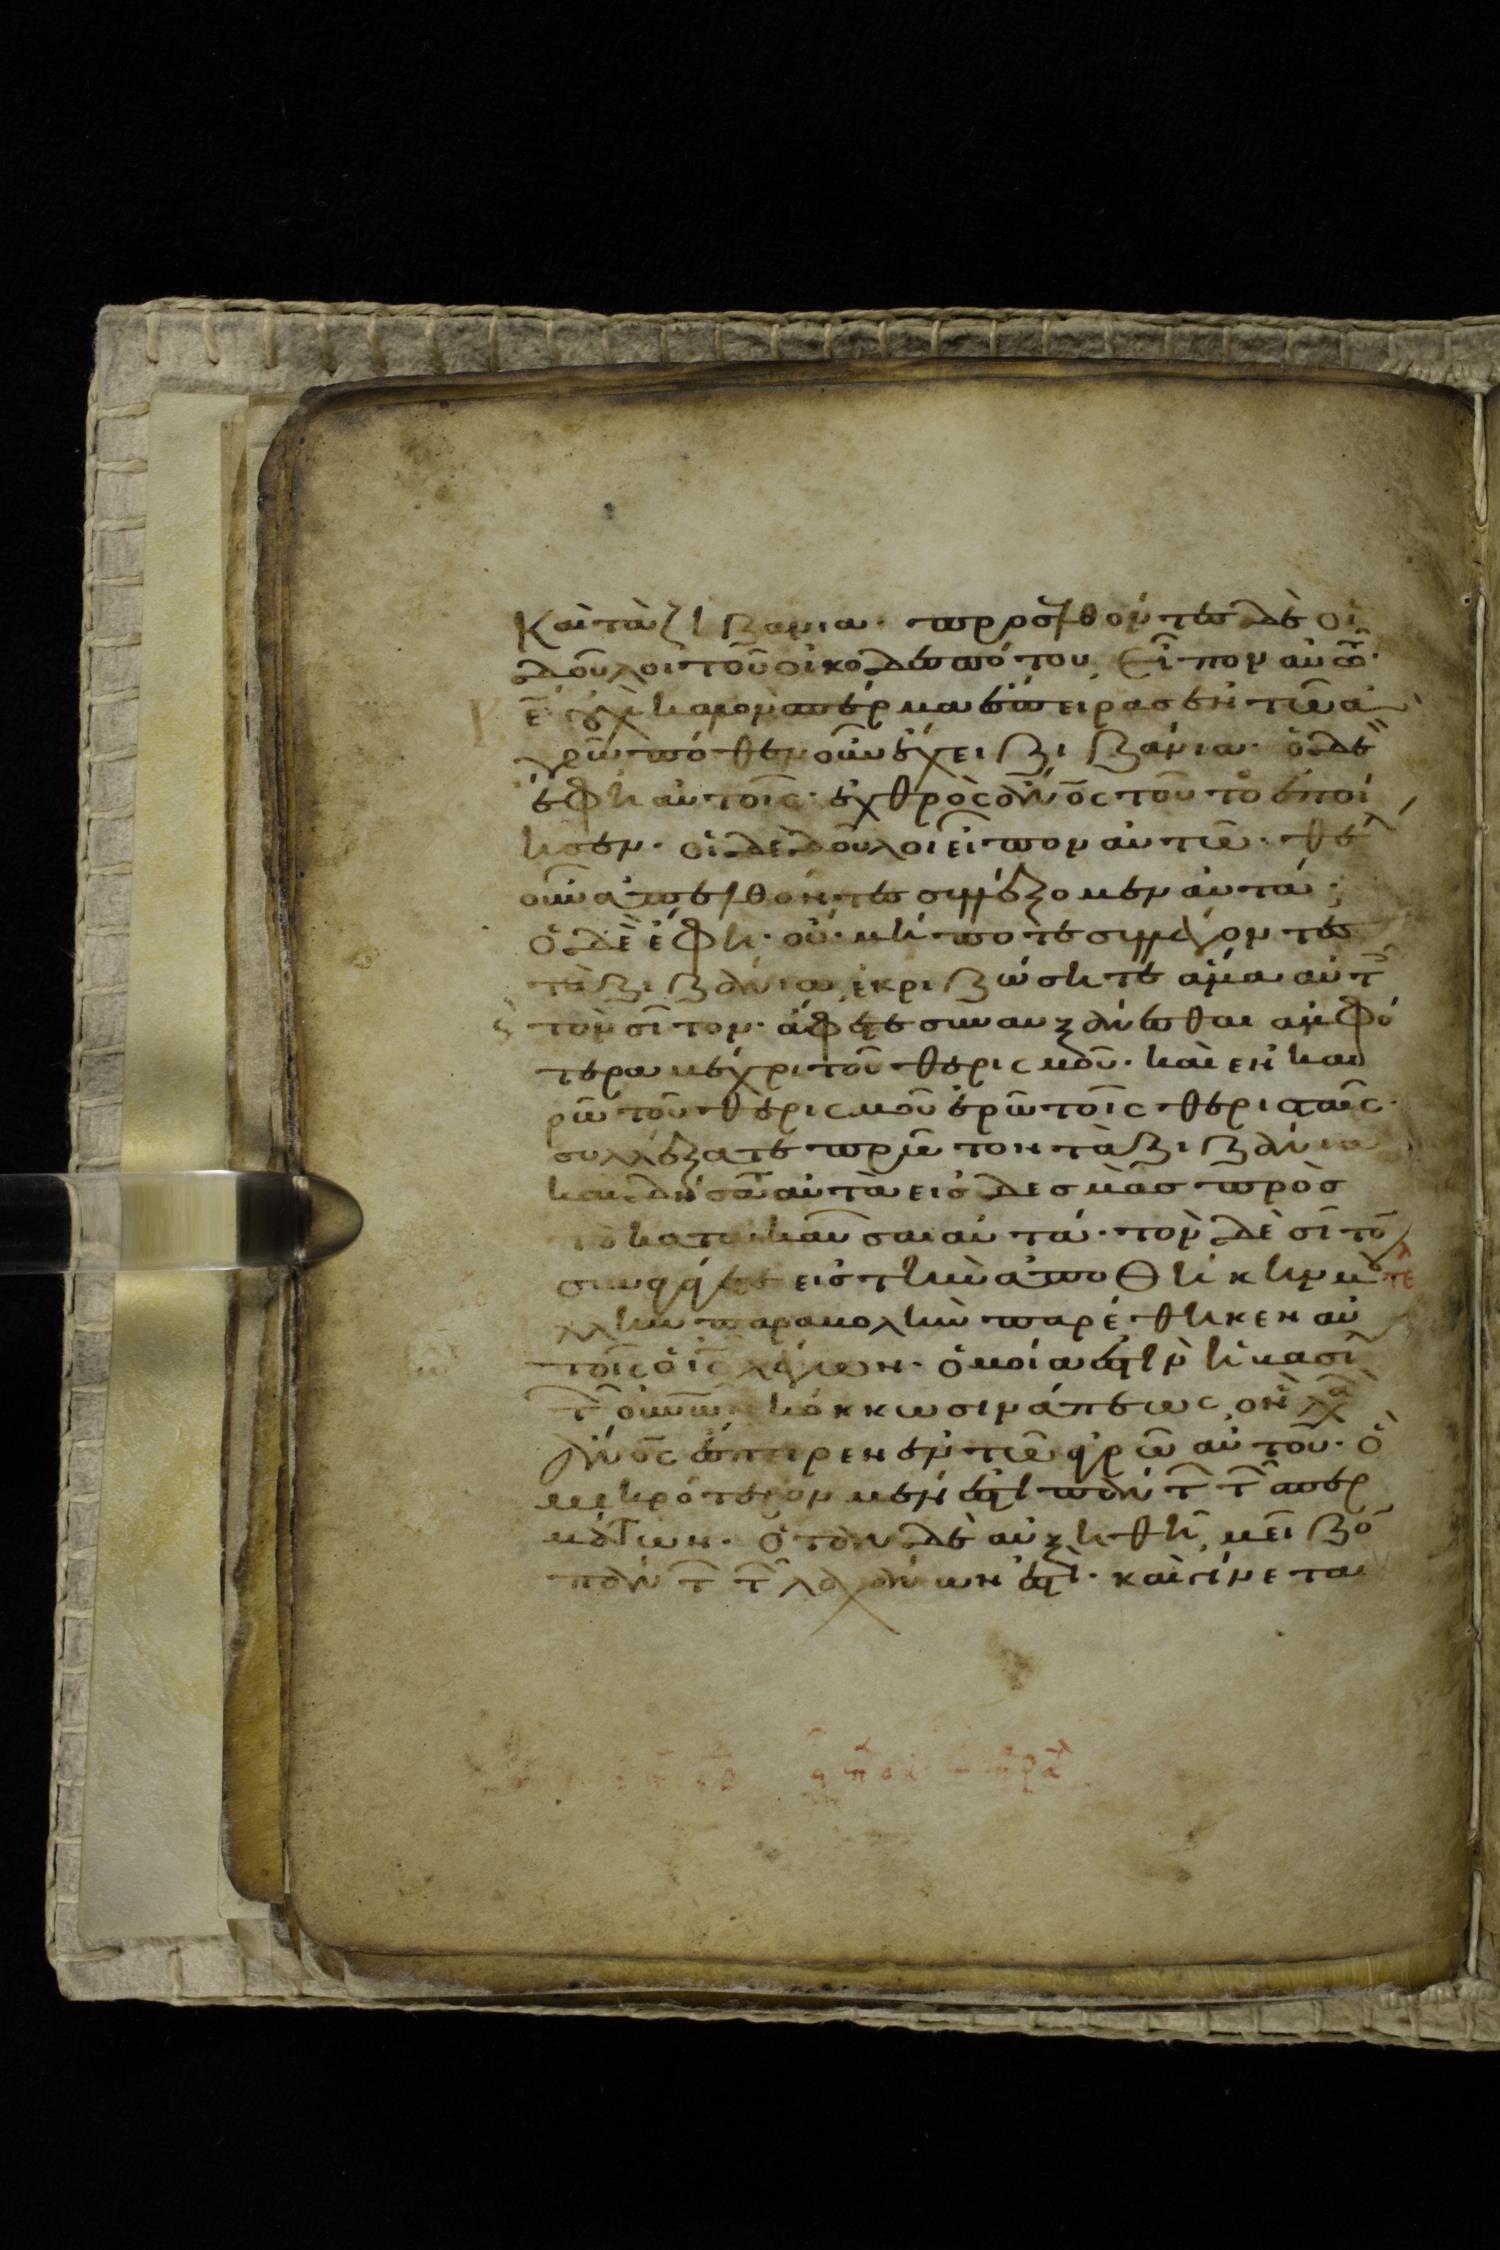 Καὶ τὰ ζιζανια· προσελθόντες δὲ οἱ
δοῦλοι τοῦ οἰκοδεσπότου εἶπον αὐτῶ·
κε̅ οὐχὶ καλὸν σπέρμα ἔσπειρας ἐν τῶ ἀ
γρῶ πόθεν οὖν ἔχει ζιζάνια· ὁ δὲ
ἔφη αὐτοῖς· ἐχθρὸς ἀν̅ο̅ς τοῦτο ἐποί
ησεν· οἱ δὲ δοῦλοι εἶπον αὐτῶ· θέλ
οὖν ἀπελθόντες συλλέξομεν αὐτά·
ὁ δὲ ἔφη· οὔ· μήποτε συλλέγοντες
τὰ ζιζάνια ἐκριζώσητε ἅμα αὐτ
τὸν σῖτον· ἄφετε συναυξάνεσθαι ἀμφό
τερα μέχρι τοῦ θερισμοῦ· καὶ ἐν και
ρῶ τοῦ θερισμοῦ ἐρῶ τοῖς θερισταῖς·
συλλέξατε πρῶτον τὰ ζιζάνια
καὶ δήσατ αὐτὰ εἰς δεσμὰς πρὸς
τὸ κατακαῦσαι αὐτά· τὸν δὲ σῖτο
συναγάγετε εἰς τὴν ἀποθήκην μου
λλην παραβολὴν παρέθηκεν αὐ
τοῖς ὁ ι̅ς λέγων· ὁμοία ἐστὶν ἡ βασι
τ οὐνῶν κόκκω σινάπεως ὃν λα
ἀν̅ο̅ς ἔσπειρεν ἐν τῶ ἀγρῶ αὐτοῦ· ὃ
μικρότερον μέν ἐστι πάν τ τ σπερ
μάτων· ὅταν δὲ αὐξηθῆ μεῖζο
πάν τ τ λαχάνων ἐστὶ· καὶ γίνεται